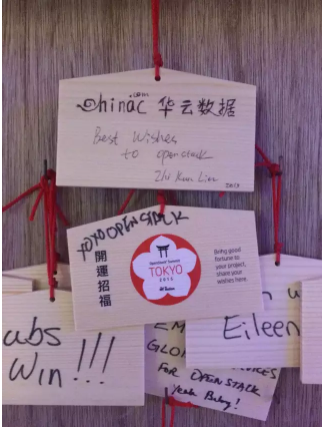 .com
chinac 华云数据
Best Wishes
to openstack
2015
YOYO OPENSTACK
開運招福
OpenStack Summit
TOKYO
2015
Bring good
fortune to
your project,
share your
wishes here.
ubs
Win!!!
Eileen
EM
GLO
FOR OPENSTACK
Yeah Baby!